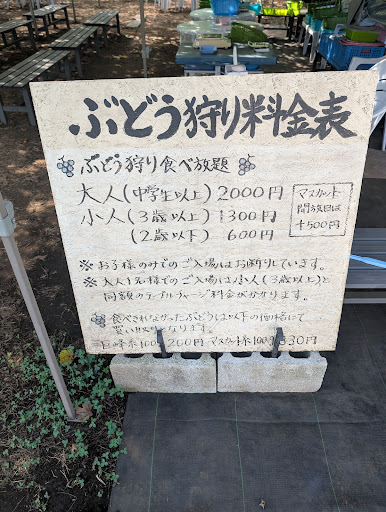 ぶどう狩り料金表
ぶどう狩り食べ放題
大人(中学生以上) 2000円
小人(3歳以上) 1300円
(2歳以下) 600円
マスカット
開放日は
+500円
※お子様のみでのご入場はお断りしています。
※大人1名様でのご入場は小人(3歳以上)と
同額のテーブルチャージ料金がかかります。
食べきれなかったぶどうは以下の価格にて
買い取りとなります。
巨峰系100g 200円 マスカット系100g 330円